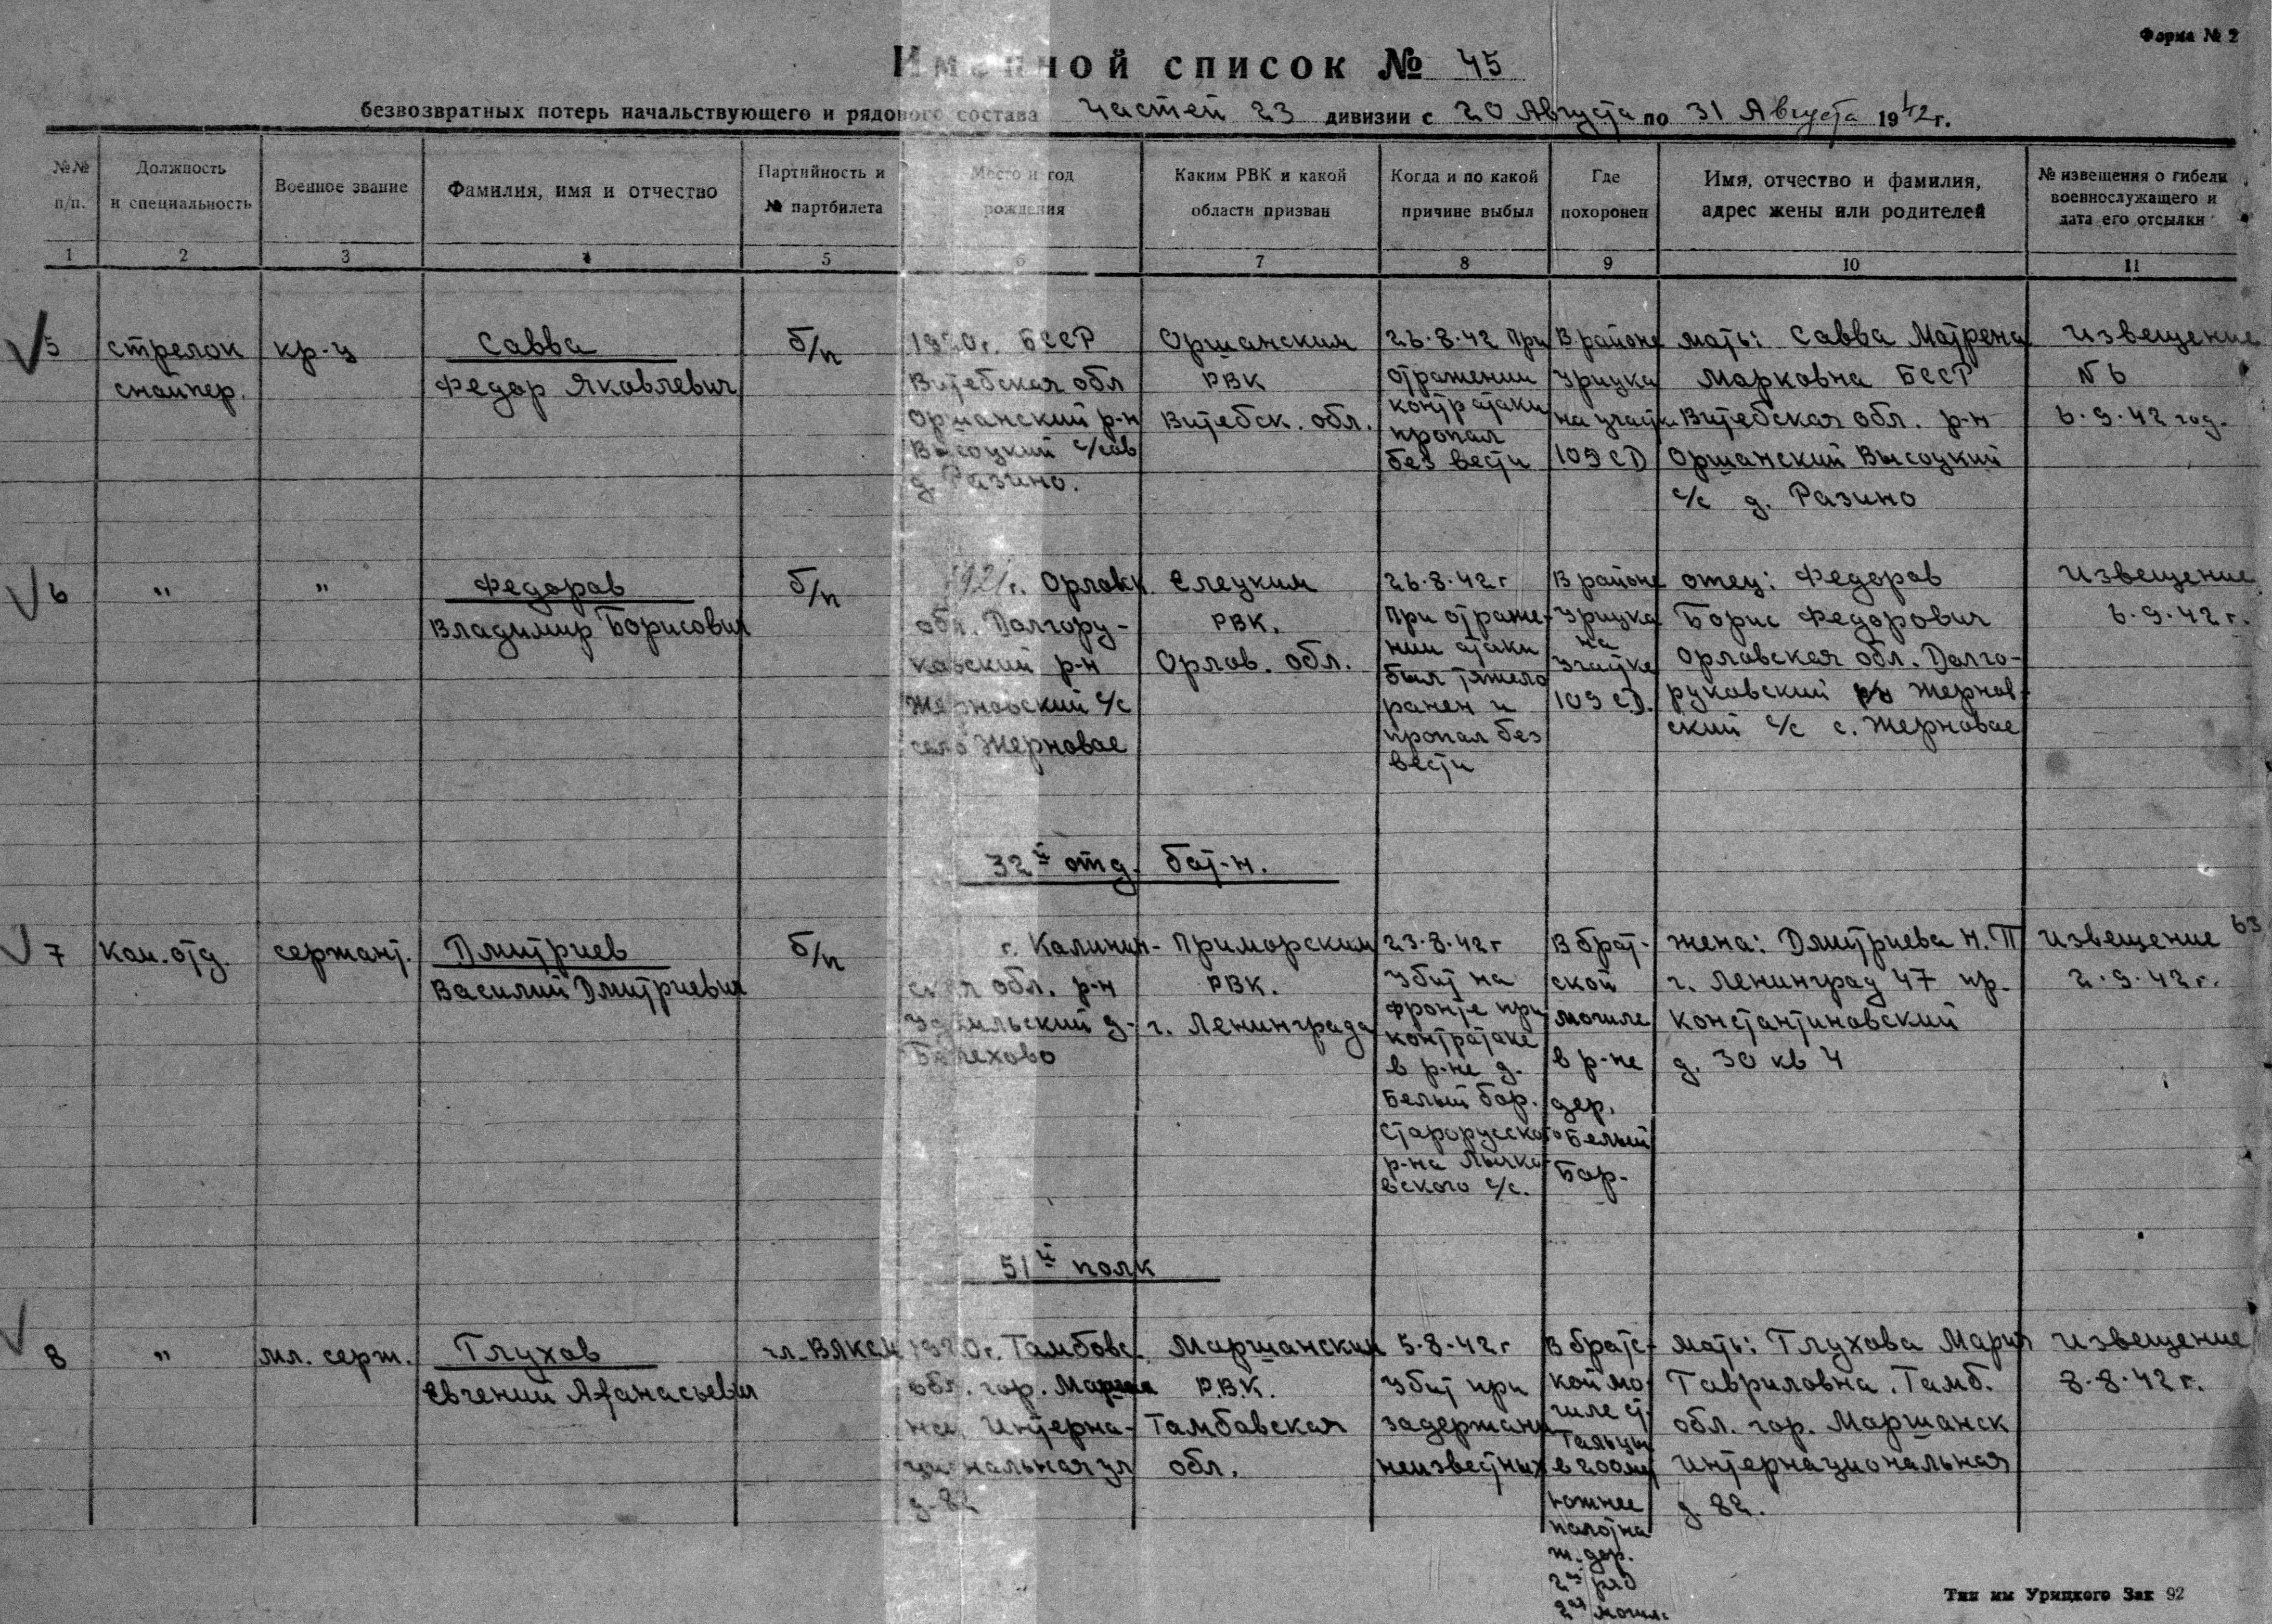 Форма № 2
Именной список № 45
безвозвратных потерь начальствующего и рядового состава Частей 23 дивизии с 20 Августа по 31 Августа 1942 г.
№№ п/п.
Должность и специальность
Военное звание
Фамилия, имя и отчество
Партийность и № партбилета
Место и год рождения
Каким РВК и какой области призван
Когда и по какой причине выбыл
Где похоронен
Имя, отчество и фамилия, адрес жены или родителей
№ извещения о гибели военнослужащего и дата его отсылки
1 2 3 4 5 6 7 8 9 10 11
5
стрелок
снайпер.
кр-ц
Савва
Федор Яковлевич
б/п
1920г. БССР
Витебская обл
Оршанский р-н
Высоцкий с/сов
д. Разино.
Оршанским
РВК
Витебск. обл.
26.8.42 При
отражении
контратаки
пропал
без вести
В районе
Урицка
на участке
109 СД
мать: Савва Матрена
Марковна БССР
Витебская обл. р-н
Оршанский Высоцкий
с/с д. Разино
Извещение
N 6
6.9.42 год.
6
"
"
Федоров
Владимир Борисович
б/п
1921г. Орловк.
обл. Долгору-
ковский р-н
Жерновский с/с
село Жерновое
Елецким
РВК.
Орлов. обл.
26.8.42г
При отраже-
нии атаки
был тяжело
ранен и
пропал без
вести
В районе
Урицка
на
участке
109 СД.
отец: Федоров
Борис Федорович
Орловская обл. Долго-
руковский рн Жернов-
ский с/с с. Жерновое
Извещение
6.9.42 г.
32й отд. бат-н.
7
Ком. отд.
сержант.
Дмитриев
Василий Дмитриевич
б/п
г. Калинин-
ская обл. р-н
д-
Приморским
РВК.
г. Ленинграда
23.8.42г
Убит на
фронте при
контратаке
в р-не д.
Белый бор.
Старорусского
р-на Лычко-
вского с/с.
В брат-
ской
могиле
в р-не
дер.
Белый
Бор.
жена: Дмитриева Н.П
г. Ленинград 47 пр.
Константиновский
д. 30 кв 4
Извещение
2.9.42г.
63
51й полк
8
"
мл. серж.
Глухов
Евгений Афанасьевич
чл. ВЛКСМ
1920г. Тамбовс.
обл. гор. Марша
нск, Интерна-
циональная ул
д-82
Маршанским
РВК.
Тамбовская
обл.
5.8.42г
Убит при
задержании
неизвестных
В братс-
кой мо-
гиле ст.
Тальцы
в 200 мт
южнее
полотна
ж. дор.
2ой ряд
2ая могил.
мать: Глухова Мария
Гавриловна. Тамб.
обл. гор. Маршанск
Интернациональная
д. 82.
Извещение
8.8.42 г.
Тип им Урицкого Зак 92